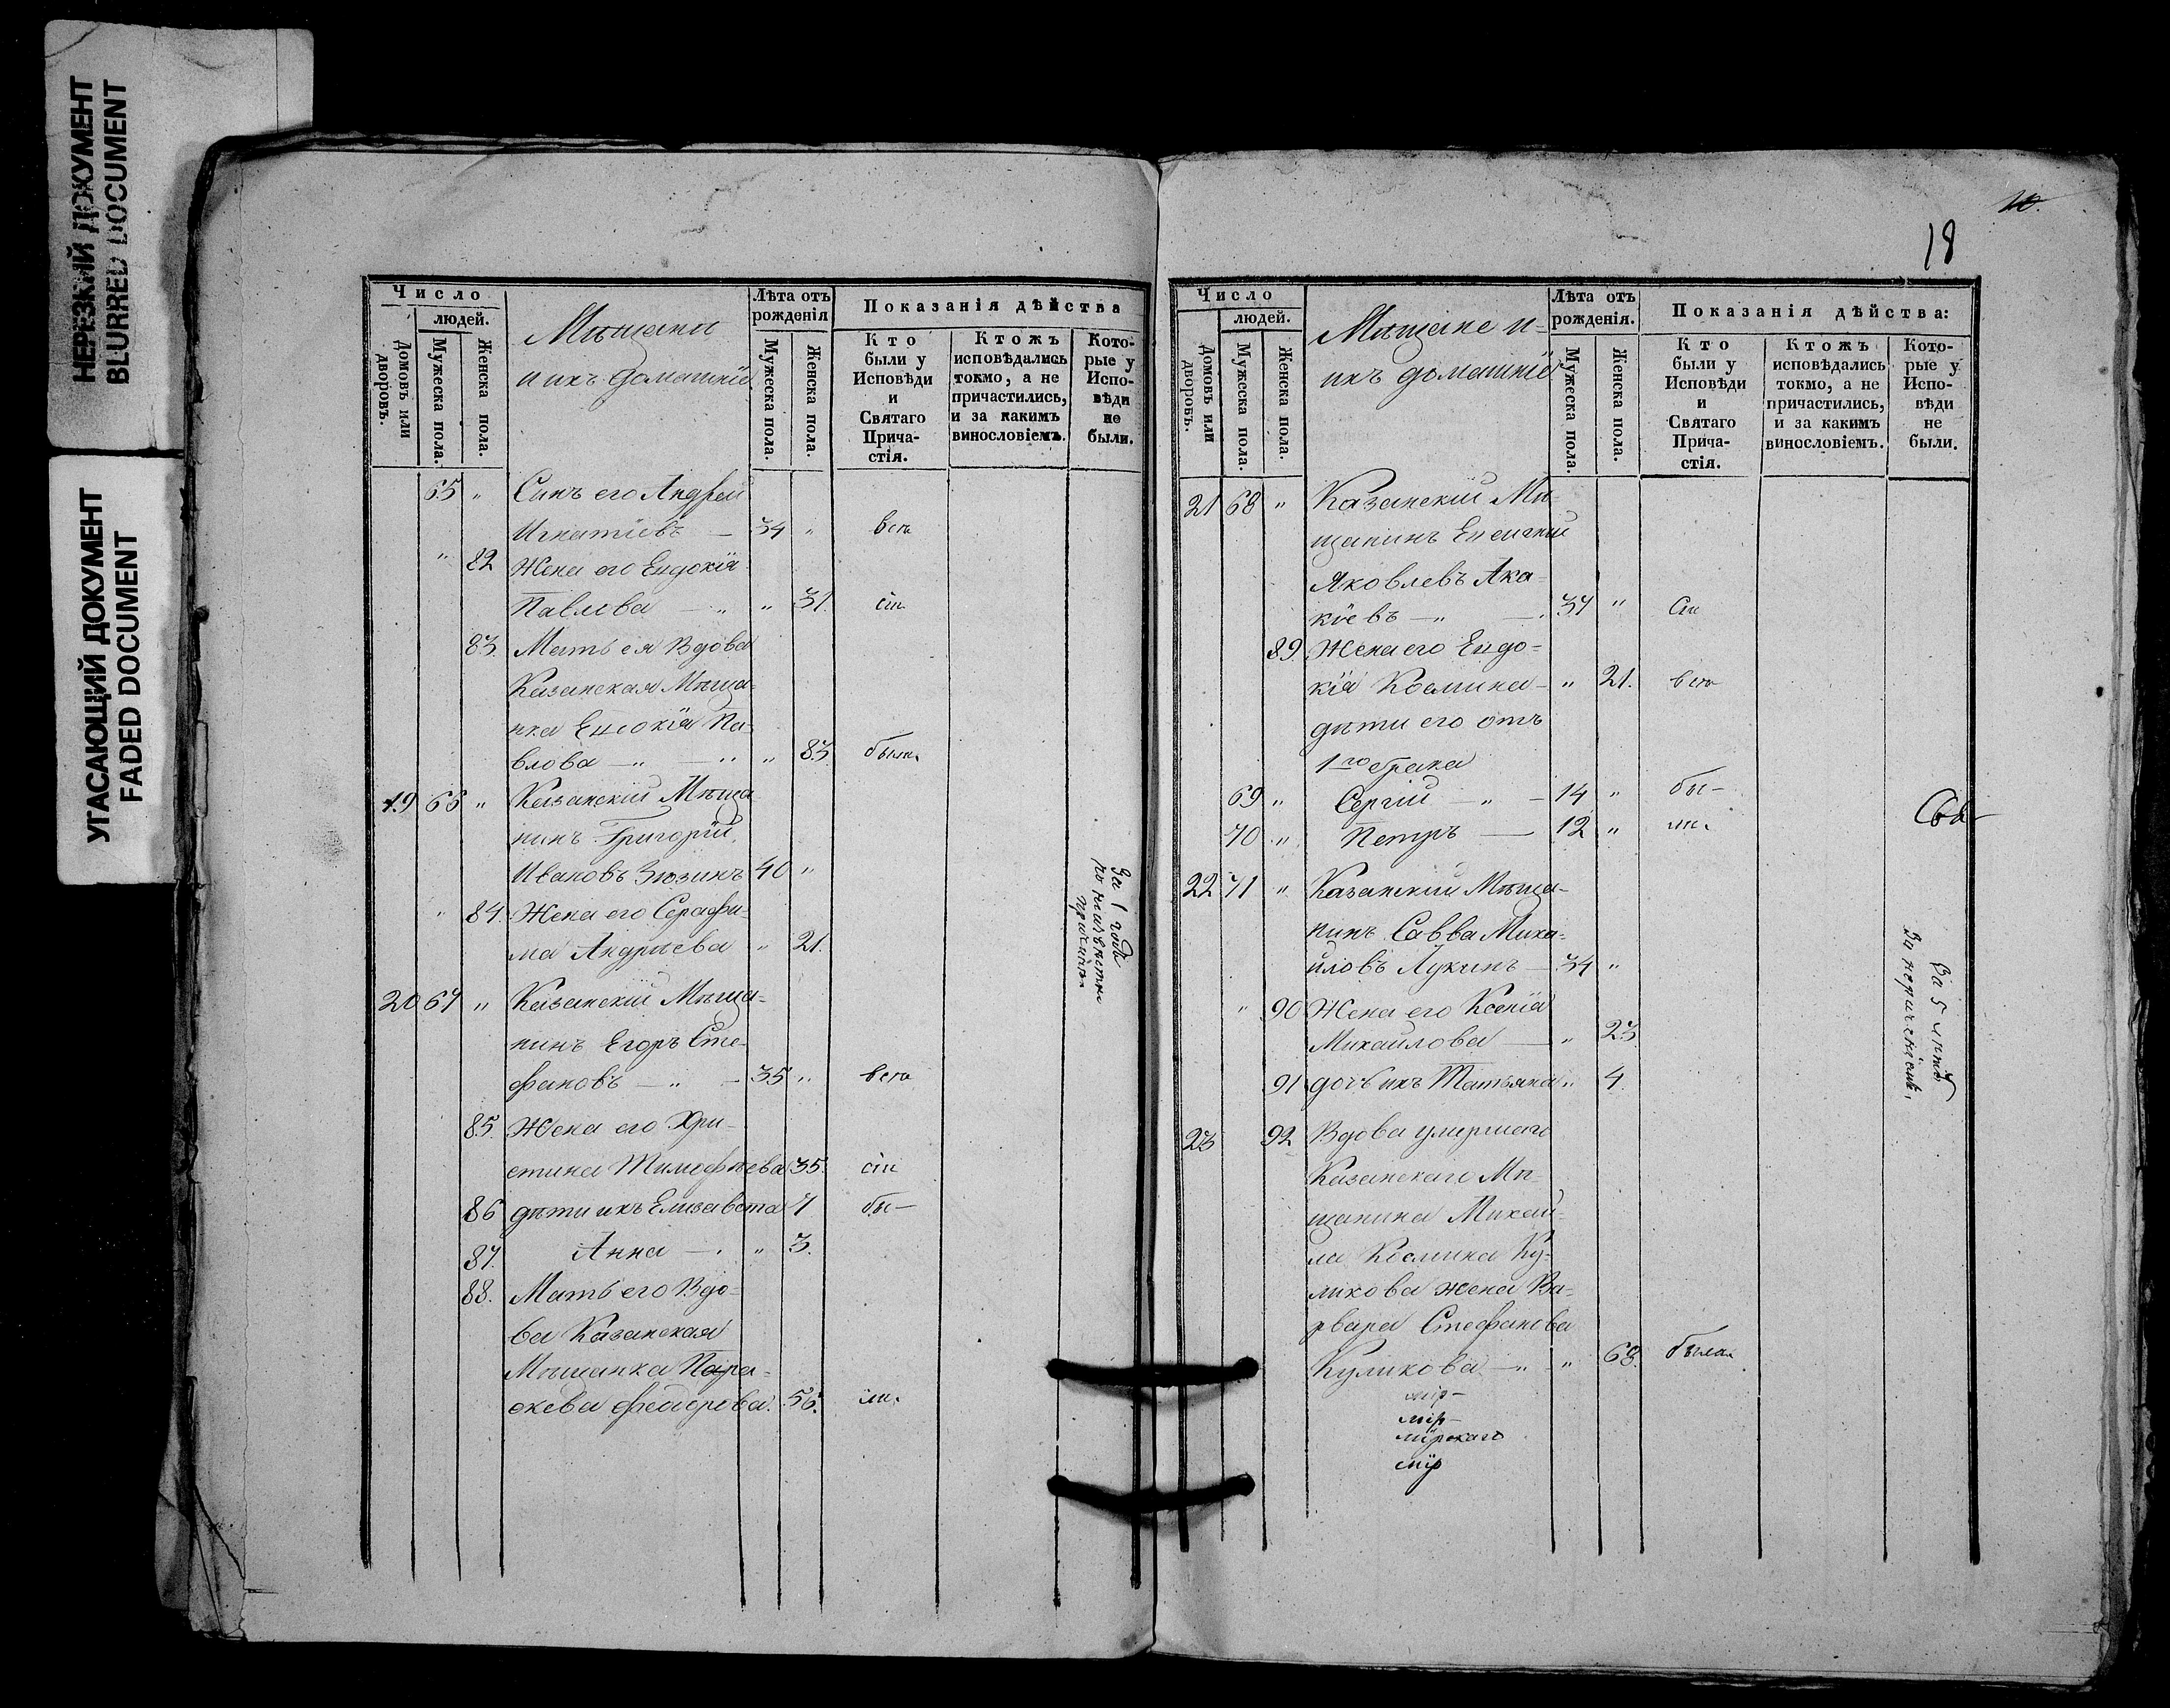 НЕРЕЗКИЙ ДОКУМЕНТ
BLURRED DOCUMENT
УГАСАЮЩИЙ ДОКУМЕНТ
FADED DOCUMENT
Число
людей.
Домовъ или дворовъ.
Мужеска пола.
Женска пола.
Мѣщане
и ихъ домашніе
Лѣта отъ рожденія
Мужеска пола.
Женска пола.
Показанія дѣйства
Кто были у Исповѣди и Святаго Прича-стія.
Ктожъ исповѣдались токмо, а не причастились, и за какимъ винословіемъ.
Кото-рые у Испо-вѣди не были.
65 " Сынъ его Андрей
Игнатіевъ — 34 "
" 82 Жена его Евдокія
Павлова — " " 31.
83. Мать ея Вдова
Казанская Мѣща-
нка Евдокія Па-
влова — " — " " 83. была
19 66 " Казанскій Мѣща-
нинъ Григорій
Ивановъ Зюзинъ 40 "
" 84. Жена его Серафи-
ма Андреева " 21.
За 1 годъ
по неизвѣстн
причинѣ
20 67 " Казанскій Мѣща-
нинъ Егоръ Сте-
фановъ — " — 35 "
85. Жена его Хри-
стина Тимофѣева 35.
86 дѣти ихъ Елизавета 7 бы-
87. Анна — . " 3.
88. Мать его Вдо-
ва Казанская
Мѣщанка Пара-
скева Феодорова. 56. ли.
18
Число
людей.
Домовъ или дворовъ.
Мужеска пола.
Женска пола.
Мѣщане и
ихъ домашніе
Лѣта отъ рожденія.
Мужеска пола.
Женска пола.
Показанія дѣйства:
Кто были у Исповѣди и Святаго Прича-стія.
Ктожъ исповѣдались токмо, а не причастились, и за какимъ винословіемъ.
Кото-рые у Испо-вѣди не были.
21 68 " Казанскій Мѣ-
щанинъ
Яковлевъ Ака-
кіевъ — " — 37 "
89. Жена его Евдо-
кія Космина — " 21.
дѣти его отъ
1го брака
69 " Сергій — " — 14 " бы-
70 " Петръ — 12 " ли.
22 71 " Казанскій Мѣща-
нинъ Савва Миха-
йловъ Лукинъ — 34 "
" 90 Жена его Ксенія
Михайлова — " 23.
91 дочь ихъ Татьяна " 4.
За 5 лѣтъ
За нераченіемъ.
23 92 Вдова умершаго
Казанскаго Мѣ-
щанина Михай-
ла Космина Ку-
ликова жена Ва-
рвара Стефанова
Куликова — " " 68. была
мір-
мір-
мірскаго
мір